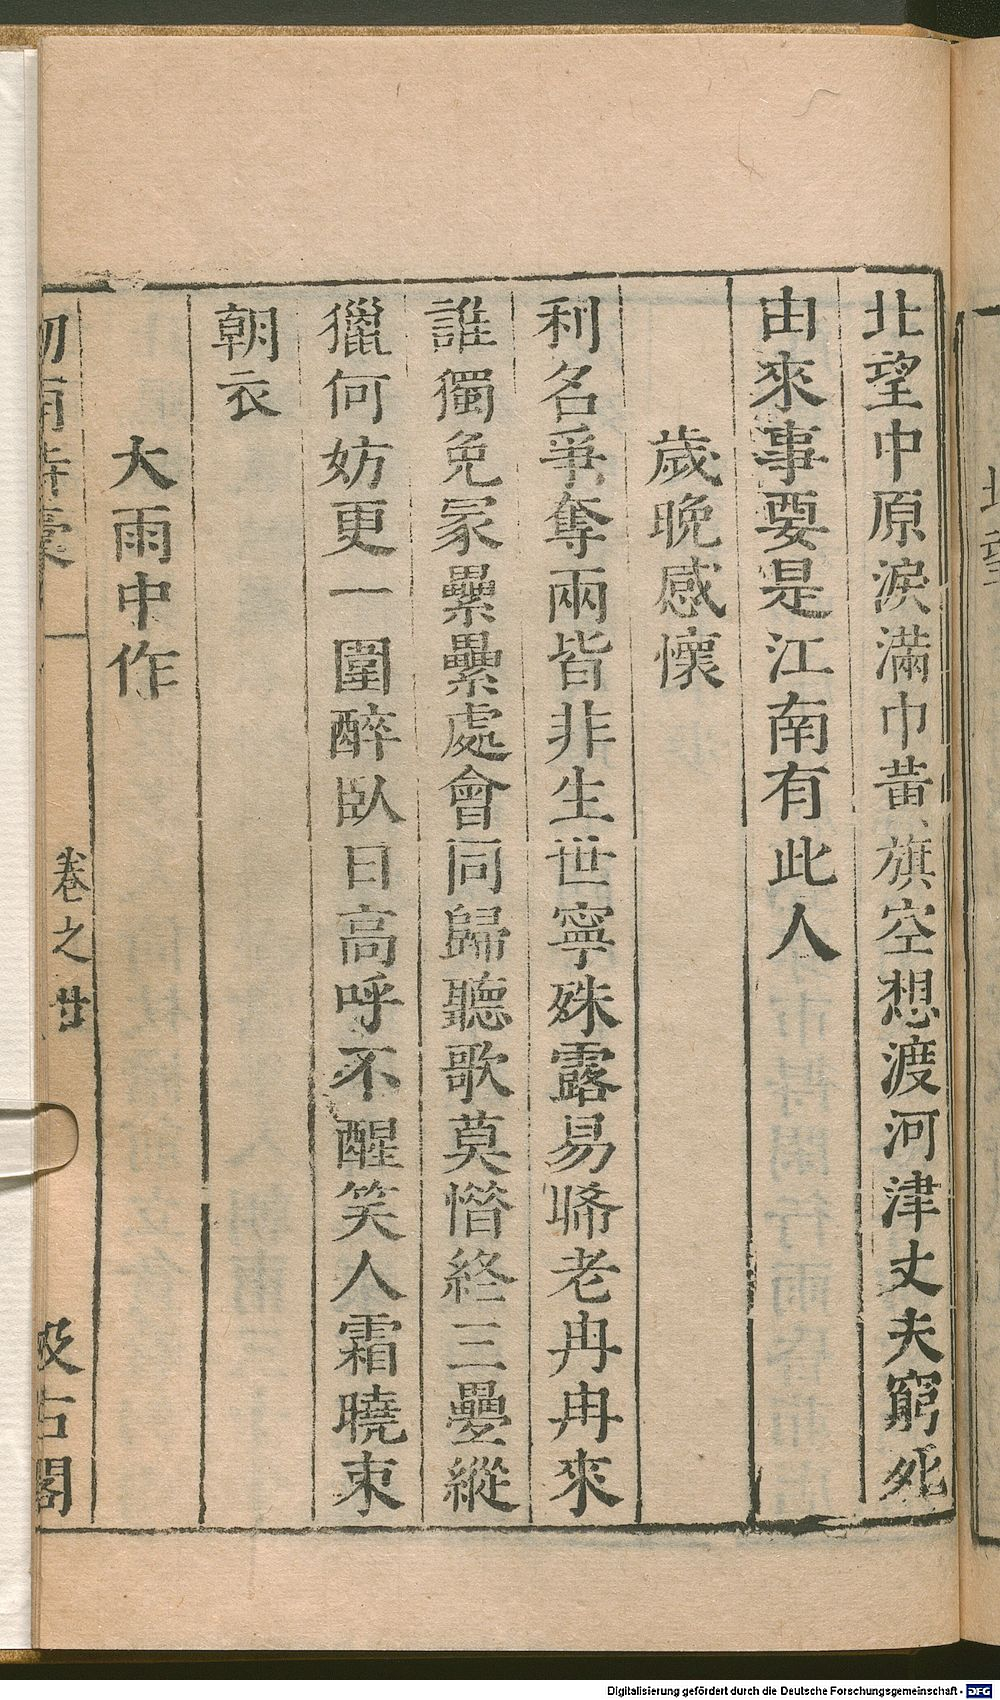 北望中原淚滿巾黃旗空想渡河津丈夫窮死
由來事要是江南有此人
歲晚感懷
利名爭奪兩皆非生世寧殊露易晞老冉冉來
誰獨免冢纍纍處會同歸聽歌莫惜終三疊縱
獵何妨更一圍醉臥日高呼不醒笑人霜曉束
朝衣
大雨中作
劍南詩稾
卷之廿
汲古閣
北望
Digitalisierung gefördert durch die Deutsche Forschungsgemeinschaft - DFG